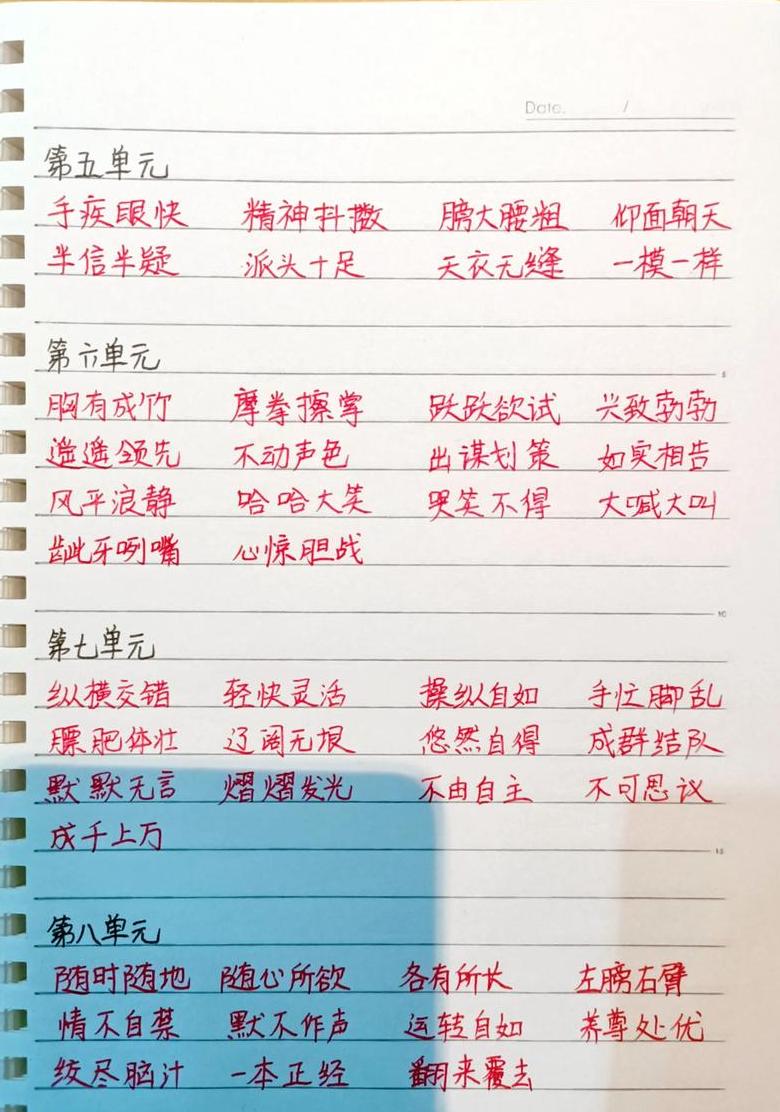 Date. /
第五单元
手疾眼快 精神抖擞 膀大腰粗 仰面朝天
半信半疑 派头十足 天衣无缝 一模一样
第六单元
5
胸有成竹 摩拳擦掌 跃跃欲试 兴致勃勃
遥遥领先 不动声色 出谋划策 如实相告
风平浪静 哈哈大笑 哭笑不得 大喊大叫
龇牙咧嘴 心惊胆战
10
第七单元
纵横交错 轻快灵活 操纵自如 手忙脚乱
膘肥体壮 辽阔无垠 悠然自得 成群结队
默默无言 熠熠发光 不由自主 不可思议
成千上万
15
第八单元
随时随地 随心所欲 各有所长 左膀右臂
情不自禁 默不作声 运转自如 养尊处优
绞尽脑汁 一本正经 翻来覆去